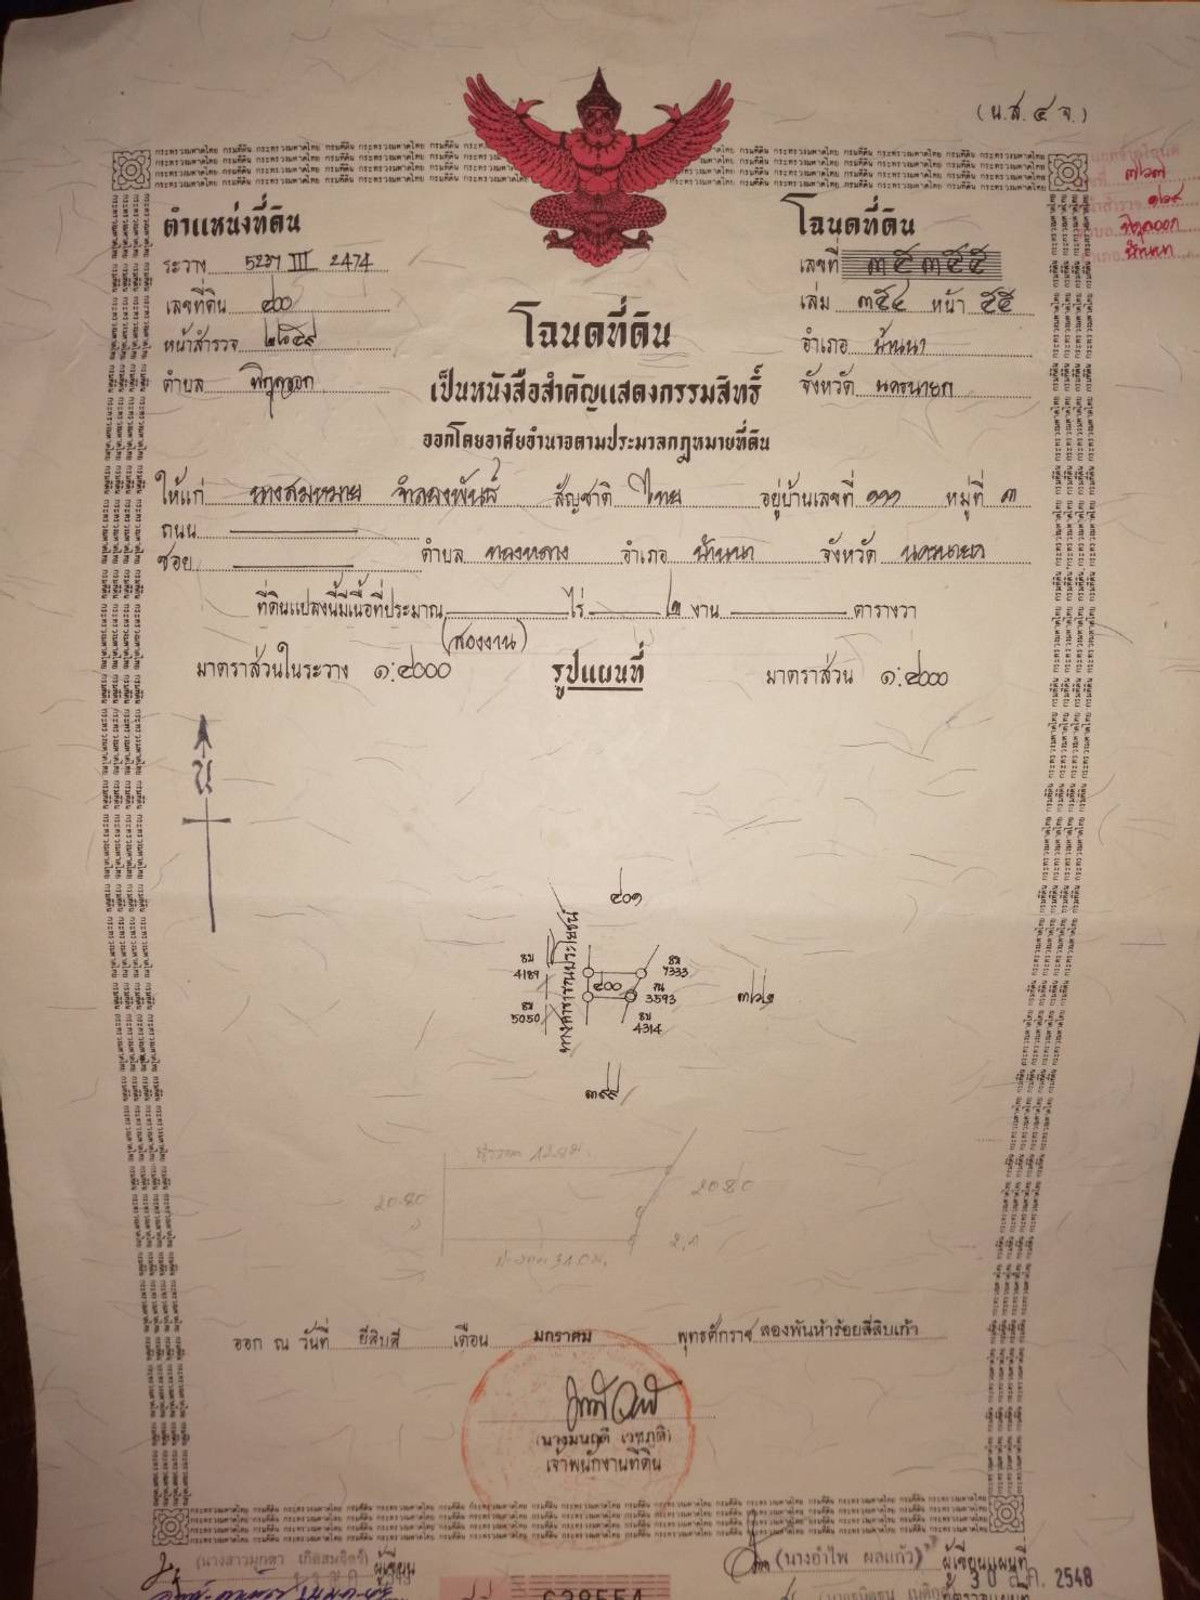 (น.ส. ๔ จ.)
ตำแหน่งที่ดิน
ระวาง 5237 III 2474
เลขที่ดิน ๔๐๐
หน้าสำรวจ
ตำบล พิกุลออก
โฉนดที่ดิน
เลขที่ ๓๕๓๕๕
เล่ม ๓๕๔ หน้า ๕๕
อำเภอ บ้านนา
จังหวัด นครนายก
โฉนดที่ดิน
เป็นหนังสือสำคัญแสดงกรรมสิทธิ์
ออกโดยอาศัยอำนาจตามประมวลกฎหมายที่ดิน
ให้แก่ นางสมหมาย จำลองพันธ์ สัญชาติ ไทย อยู่บ้านเลขที่ ๑๑๑ หมู่ที่ ๓
ถนน
ซอย ตำบล ทองหลาง อำเภอ บ้านนา จังหวัด นครนายก
ที่ดินแปลงนี้มีเนื้อที่ประมาณ ไร่ ๒ งาน ตารางวา
(สองงาน)
มาตราส่วนในระวาง ๑:๔๐๐๐ รูปแผนที่ มาตราส่วน ๑:๔๐๐๐
น
๔๐๑
ทางสาธารณประโยชน์
4189
7333
๔๐๐
3593
๓๖๒
5050
4314
๓๙๙
20.80
20.80
ออก ณ วันที่ ยี่สิบสี่ เดือน มกราคม พุทธศักราช สองพันห้าร้อยสี่สิบเก้า
(นางมนฤดี เวชภูติ)
เจ้าพนักงานที่ดิน
ผู้เขียน
(นางอำไพ ผลแก้ว) ผู้เขียนแผนที่
2548
638554